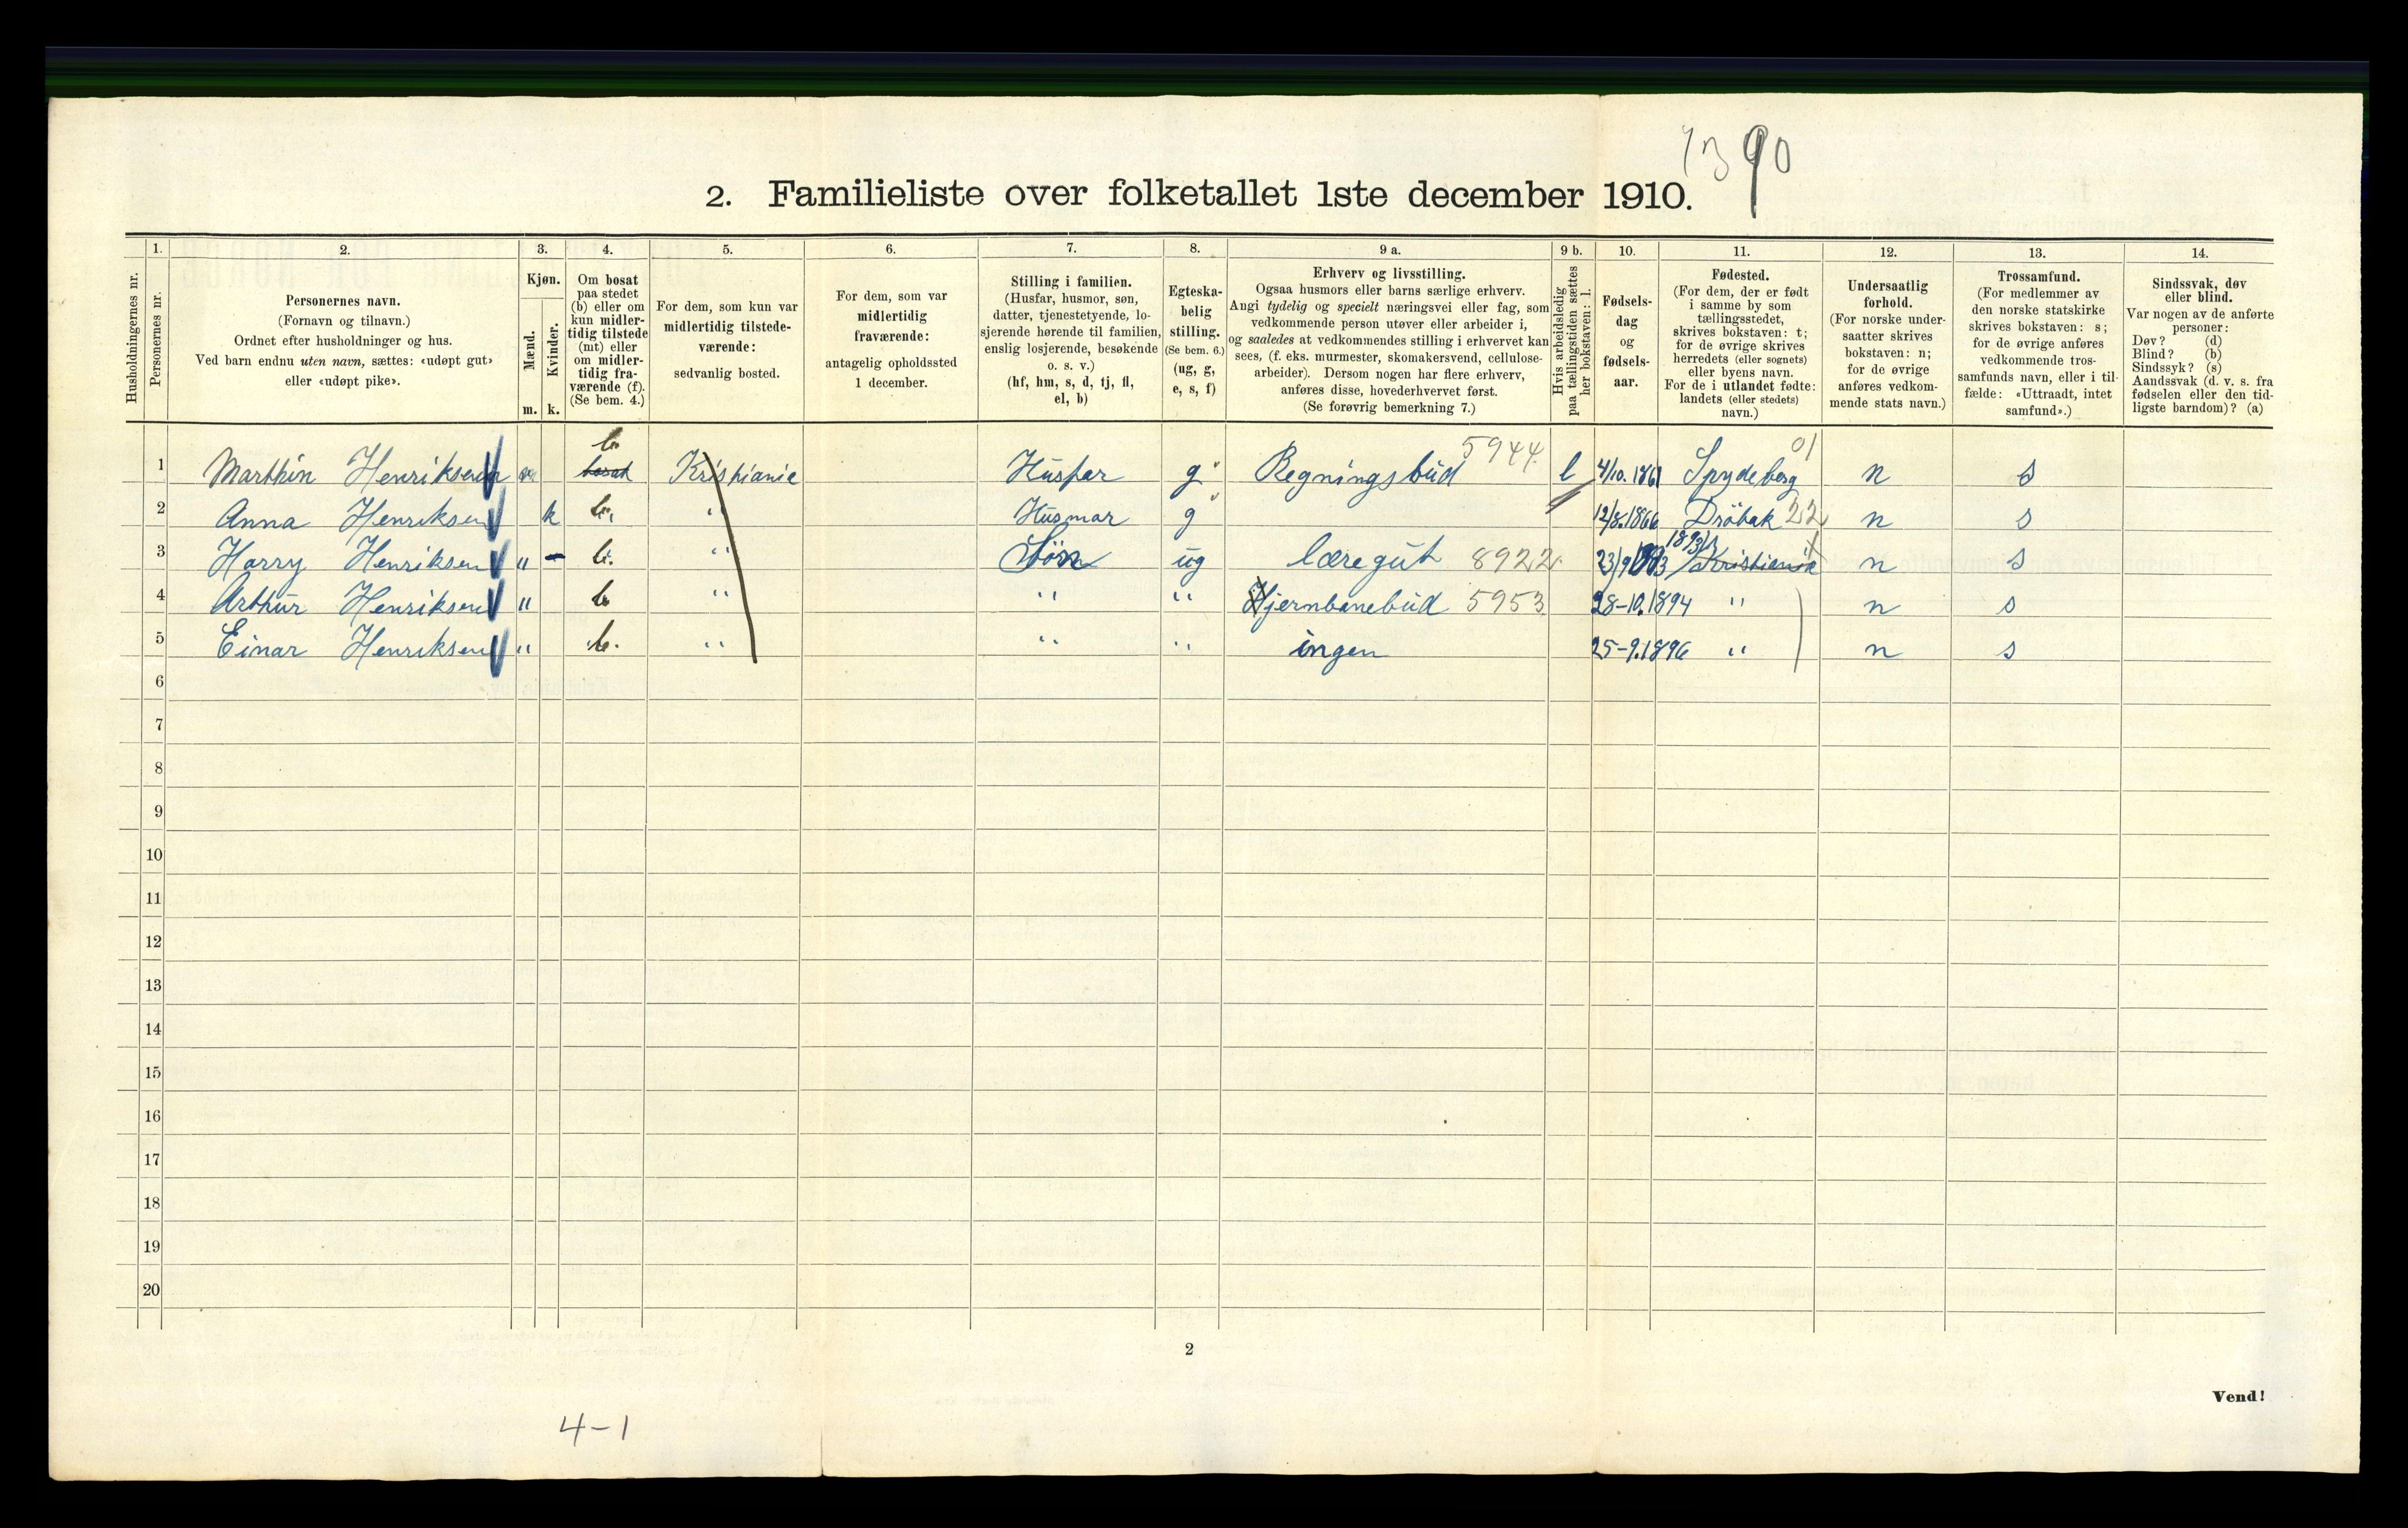 1390
2. Familieliste over folketallet 1ste december 1910.
Husholdningernes nr.
1. Personernes nr.
2. Personernes navn.
(Fornavn og tilnavn.)
Ordnet efter husholdninger og hus.
Ved barn endnu uten navn, sættes: «udøpt gut»
eller «udøpt pike».
3. Kjøn.
Mænd. Kvinder.
m. k.
4. Om bosat
paa stedet
(b) eller om
kun midler-
tidig tilstede
(mt) eller
om midler-
tidig fra-
værende (f).
(Se bem. 4.)
5. For dem, som kun var
midlertidig tilstede-
værende:
sedvanlig bosted.
6. For dem, som var
midlertidig
fraværende:
antagelig opholdssted
1 december.
7. Stilling i familien.
(Husfar, husmor, søn,
datter, tjenestetyende, lo-
sjerende hørende til familien,
enslig losjerende, besøkende
o. s. v.)
(hf, hm, s, d, tj, fl,
el, b)
8. Egteska-
belig
stilling.
(Se bem. 6.)
(ug, g,
e, s, f)
9 a. Erhverv og livsstilling.
Ogsaa husmors eller barns særlige erhverv.
Angi tydelig og specielt næringsvei eller fag, som
vedkommende person utøver eller arbeider i,
og saaledes at vedkommendes stilling i erhvervet kan
sees, (f. eks. murmester, skomakersvend, cellulose-
arbeider). Dersom nogen har flere erhverv,
anføres disse, hovederhvervet først.
(Se forøvrig bemerkning 7.)
9 b. Hvis arbeidsledig
paa tællingstiden sættes
her bokstaven: l.
10. Fødsels-
dag
og
fødsels-
aar.
11. Fødested.
(For dem, der er født
i samme by som
tællingsstedet,
skrives bokstaven: t;
for de øvrige skrives
herredets (eller sognets)
eller byens navn.
For de i utlandet fødte:
landets (eller stedets)
navn.)
12. Undersaatlig
forhold.
(For norske under-
saatter skrives
bokstaven: n;
for de øvrige
anføres vedkom-
mende stats navn.)
13. Trossamfund.
(For medlemmer av
den norske statskirke
skrives bokstaven: s;
for de øvrige anføres
vedkommende tros-
samfunds navn, eller i til-
fælde: «Uttraadt, intet
samfund».)
14. Sindssvak, døv
eller blind.
Var nogen av de anførte
personer:
Døv? (d)
Blind? (b)
Sindssyk? (s)
Aandssvak (d. v. s. fra
fødselen eller den tid-
ligste barndom)? (a)
1 Marthin Henriksen m bosat b. Kristiania Husfar g Regningsbud 5944 l 4/10.1861 Spydeberg 01 n s
2 Anna Henriksen k b. " Husmar g 12/8.1866 Dröbak 22 n s
3 Harry Henriksen " - b. " Sön ug læregut 8922 23/9 1893 Kristiania t n s
4 Arthur Henriksen " b " " " Hjernbanebud 5953 28-10.1894 " n s
5 Einar Henriksen " b. " " " ingen 25-9.1896 " n s
6
7
8
9
10
11
12
13
14
15
16
17
18
19
20
2
Vend!
4-1